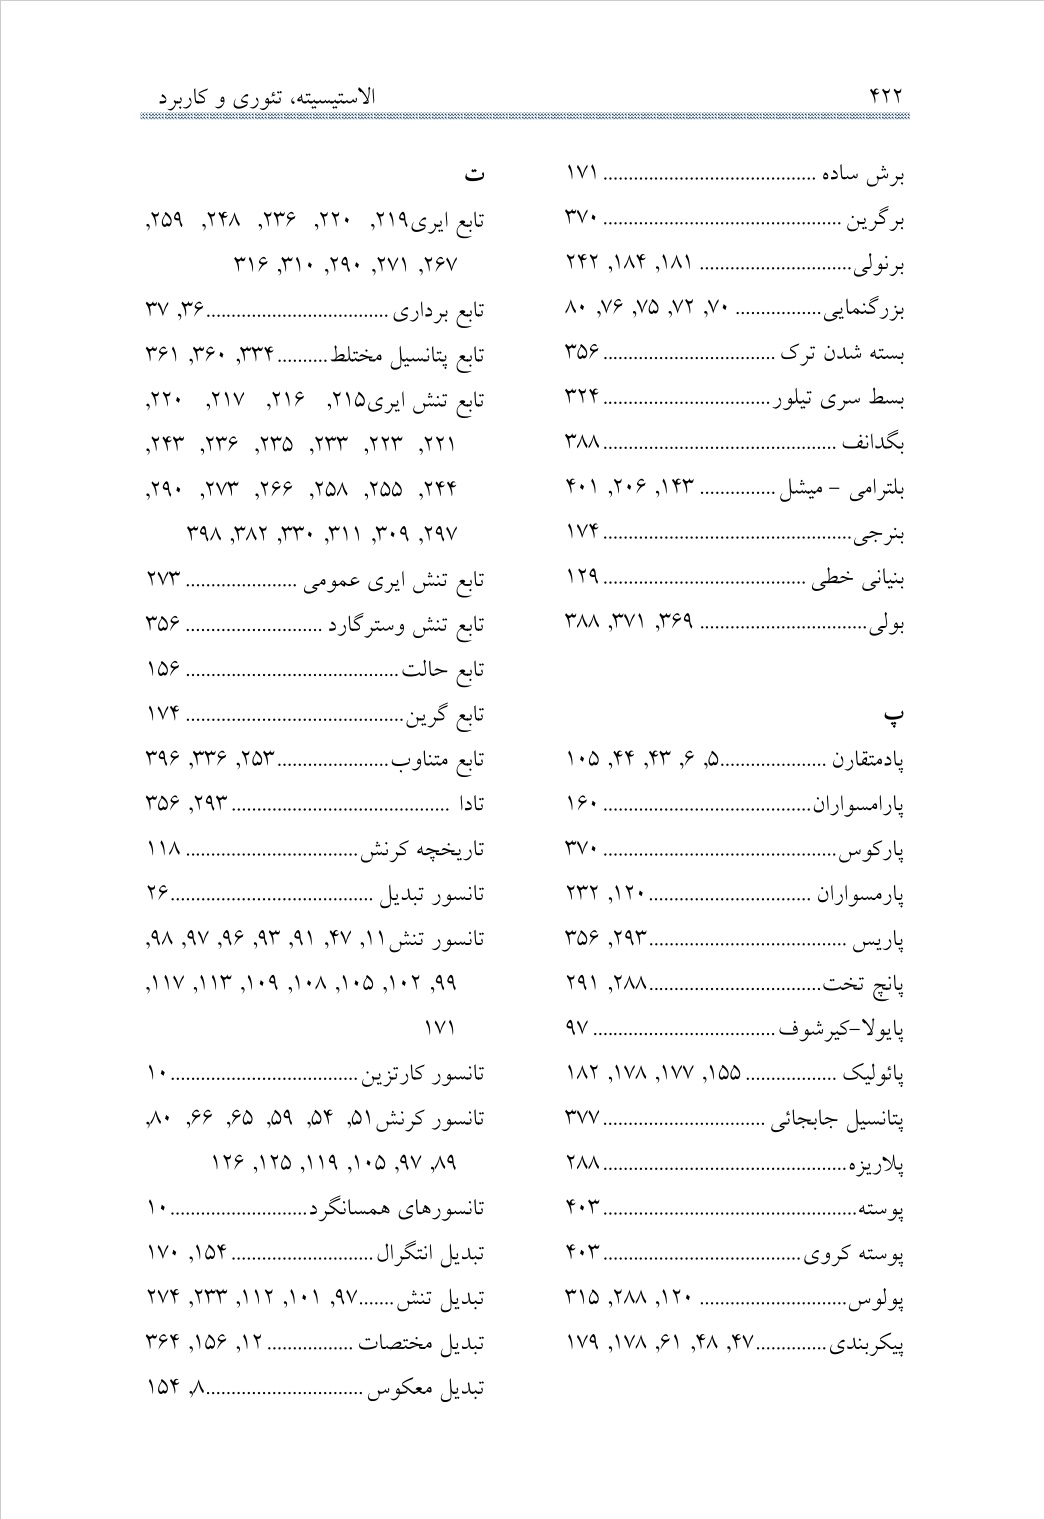 ۴۲۲
الاستیسیته، تئوری و کاربرد
برش ساده .......................................... ۱۷۱
برگرین ............................................... ۳۷۰
برنولی.............................. ۱۸۱, ۱۸۴, ۲۴۲
بزرگنمایی................. ۷۰, ۷۲, ۷۵, ۷۶, ۸۰
بسته شدن ترک .................................. ۳۵۶
بسط سری تیلور................................. ۳۲۴
بگدانف .............................................. ۳۸۸
بلترامی – میشل ............... ۱۴۳, ۲۰۶, ۴۰۱
بنرجی................................................. ۱۷۴
بنیانی خطی ........................................ ۱۲۹
بولی................................. ۳۶۹, ۳۷۱, ۳۸۸
پ
پادمتقارن .....................۵, ۶, ۴۳, ۴۴, ۱۰۵
پارامسواران......................................... ۱۶۰
پارکوس.............................................. ۳۷۰
پارمسواران ................................۱۲۰, ۲۳۲
پاریس .......................................۲۹۳, ۳۵۶
پانچ تخت..................................۲۸۸, ۲۹۱
پایولا–کیرشوف .................................... ۹۷
پائولیک .................. ۱۵۵, ۱۷۷, ۱۷۸, ۱۸۲
پتانسیل جابجائی ................................ ۳۷۷
پلاریزه................................................ ۲۸۸
پوسته.................................................. ۴۰۳
پوسته کروی....................................... ۴۰۳
پولوس............................. ۱۲۰, ۲۸۸, ۳۱۵
پیکربندی..............۴۷, ۴۸, ۶۱, ۱۷۸, ۱۷۹
ت
تابع ایری۲۱۹, ۲۲۰, ۲۳۶, ۲۴۸, ۲۵۹,
۲۶۷, ۲۷۱, ۲۹۰, ۳۱۰, ۳۱۶
تابع برداری ....................................۳۶, ۳۷
تابع پتانسیل مختلط..........۳۳۴, ۳۶۰, ۳۶۱
تابع تنش ایری۲۱۵, ۲۱۶, ۲۱۷, ۲۲۰,
۲۲۱, ۲۲۳, ۲۳۳, ۲۳۵, ۲۳۶, ۲۴۳,
۲۴۴, ۲۵۵, ۲۵۸, ۲۶۶, ۲۷۳, ۲۹۰,
۲۹۷, ۳۰۹, ۳۱۱, ۳۳۰, ۳۸۲, ۳۹۸
تابع تنش ایری عمومی ...................... ۲۷۳
تابع تنش وسترگارد ........................... ۳۵۶
تابع حالت.......................................... ۱۵۶
تابع گرین........................................... ۱۷۴
تابع متناوب......................۲۵۳, ۳۳۶, ۳۹۶
تادا ........................................... ۲۹۳, ۳۵۶
تاریخچه کرنش.................................. ۱۱۸
تانسور تبدیل ........................................۲۶
تانسور تنش۱۱, ۴۷, ۹۱, ۹۳, ۹۶, ۹۷, ۹۸,
۹۹, ۱۰۲, ۱۰۵, ۱۰۸, ۱۰۹, ۱۱۳, ۱۱۷,
۱۷۱
تانسور کارتزین .....................................۱۰
تانسور کرنش۵۱, ۵۴, ۵۹, ۶۵, ۶۶, ۸۰,
۸۹, ۹۷, ۱۰۵, ۱۱۹, ۱۲۵, ۱۲۶
تانسورهای همسانگرد...........................۱۰
تبدیل انتگرال ............................ ۱۵۴, ۱۷۰
تبدیل تنش.......۹۷, ۱۰۱, ۱۱۲, ۲۳۳, ۲۷۴
تبدیل مختصات .................۱۲, ۱۵۶, ۳۶۴
تبدیل معکوس ...............................۸, ۱۵۴